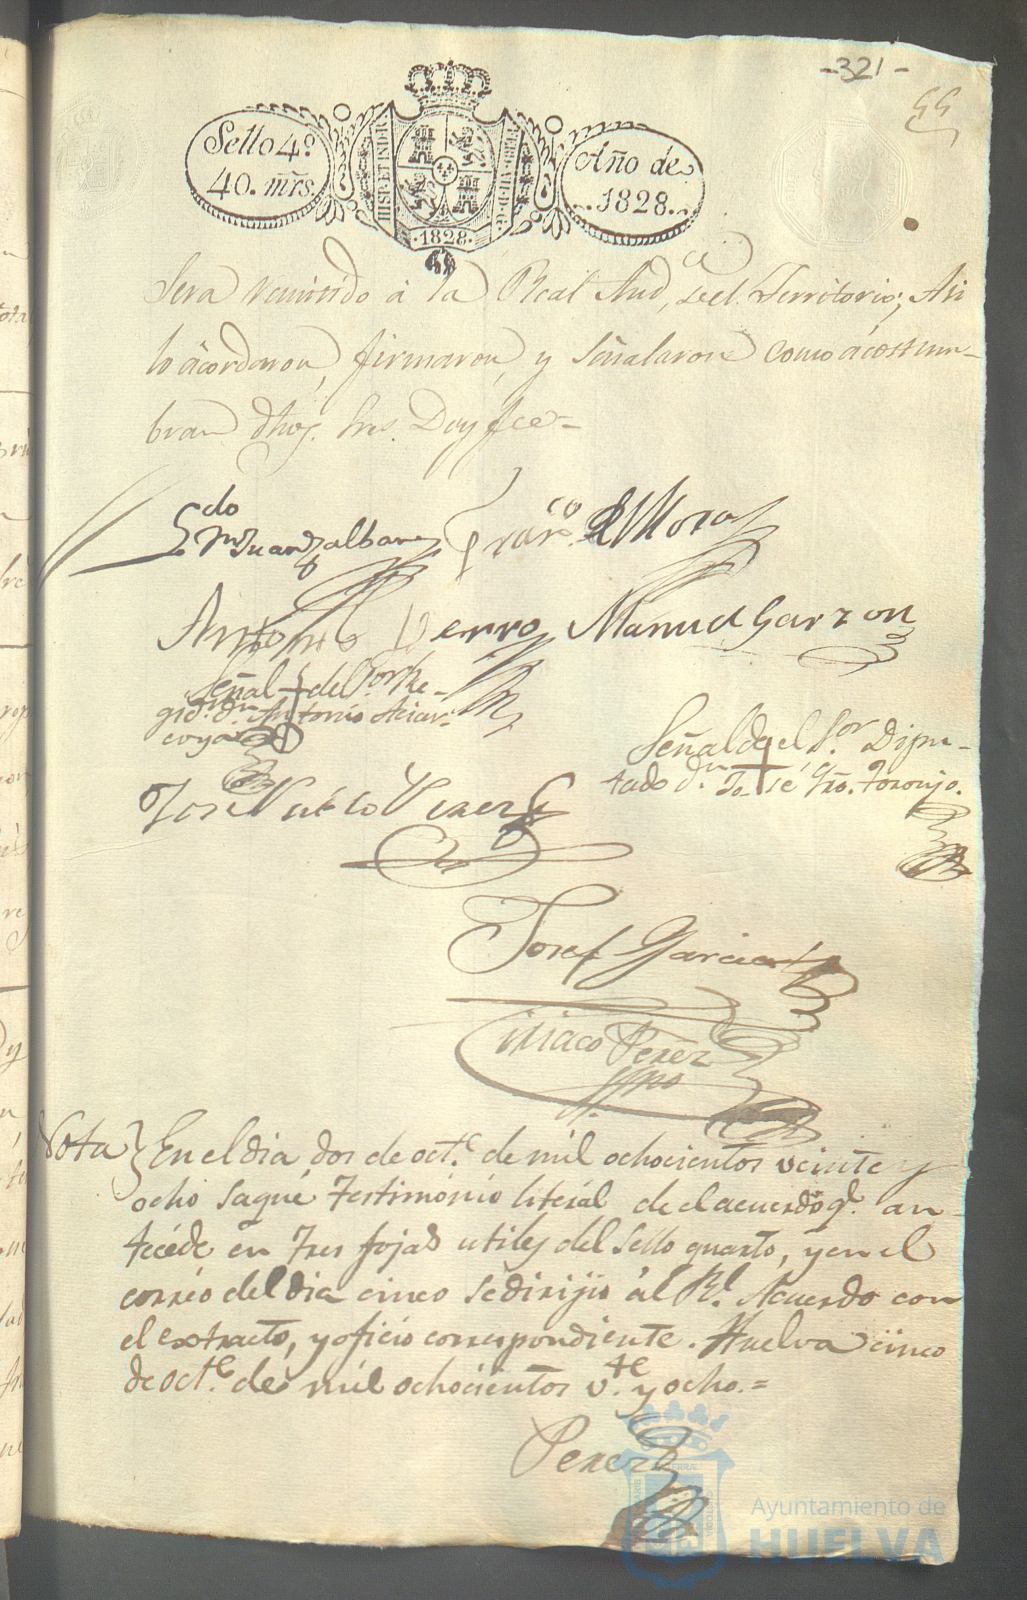 -321-
55
Sello 4º
40. mrs
HISP. ET IND. R
1828.
FERD. VII. D. G.
Año de
1828.
Sera remitido á la Real Aud.ª del Territorio; Asi
lo ácordaron, firmaron, y señalaron como ácostum-
bran dhos. Sres. Doy fee =
Juan Jalbarez Fran.co Mora
Antonio Verro Manuel Garzon
Señal + del S.or Re-
gid.r d.n Antonio
Señal de el S.or Dipu-
tado d.n José Toronjo.
Jose Pablo Perez
Josef Garcia
Ciriaco Perez
ssno
Nota } En el dia dos de oct.e de mil ochocientos veinte y
ocho saqué testimónio literál de el acuerdo q.e an-
tecede en tres fojas utiles del sello quarto, y en el
corréo del dia cinco se dirijió ál R.l Acuerdo con
el extracto, y oficio correspondiente. Huelva cinco
de oct.e de mil ochocientos v.te y ocho. =
Perez
Ayuntamiento de
HUELVA